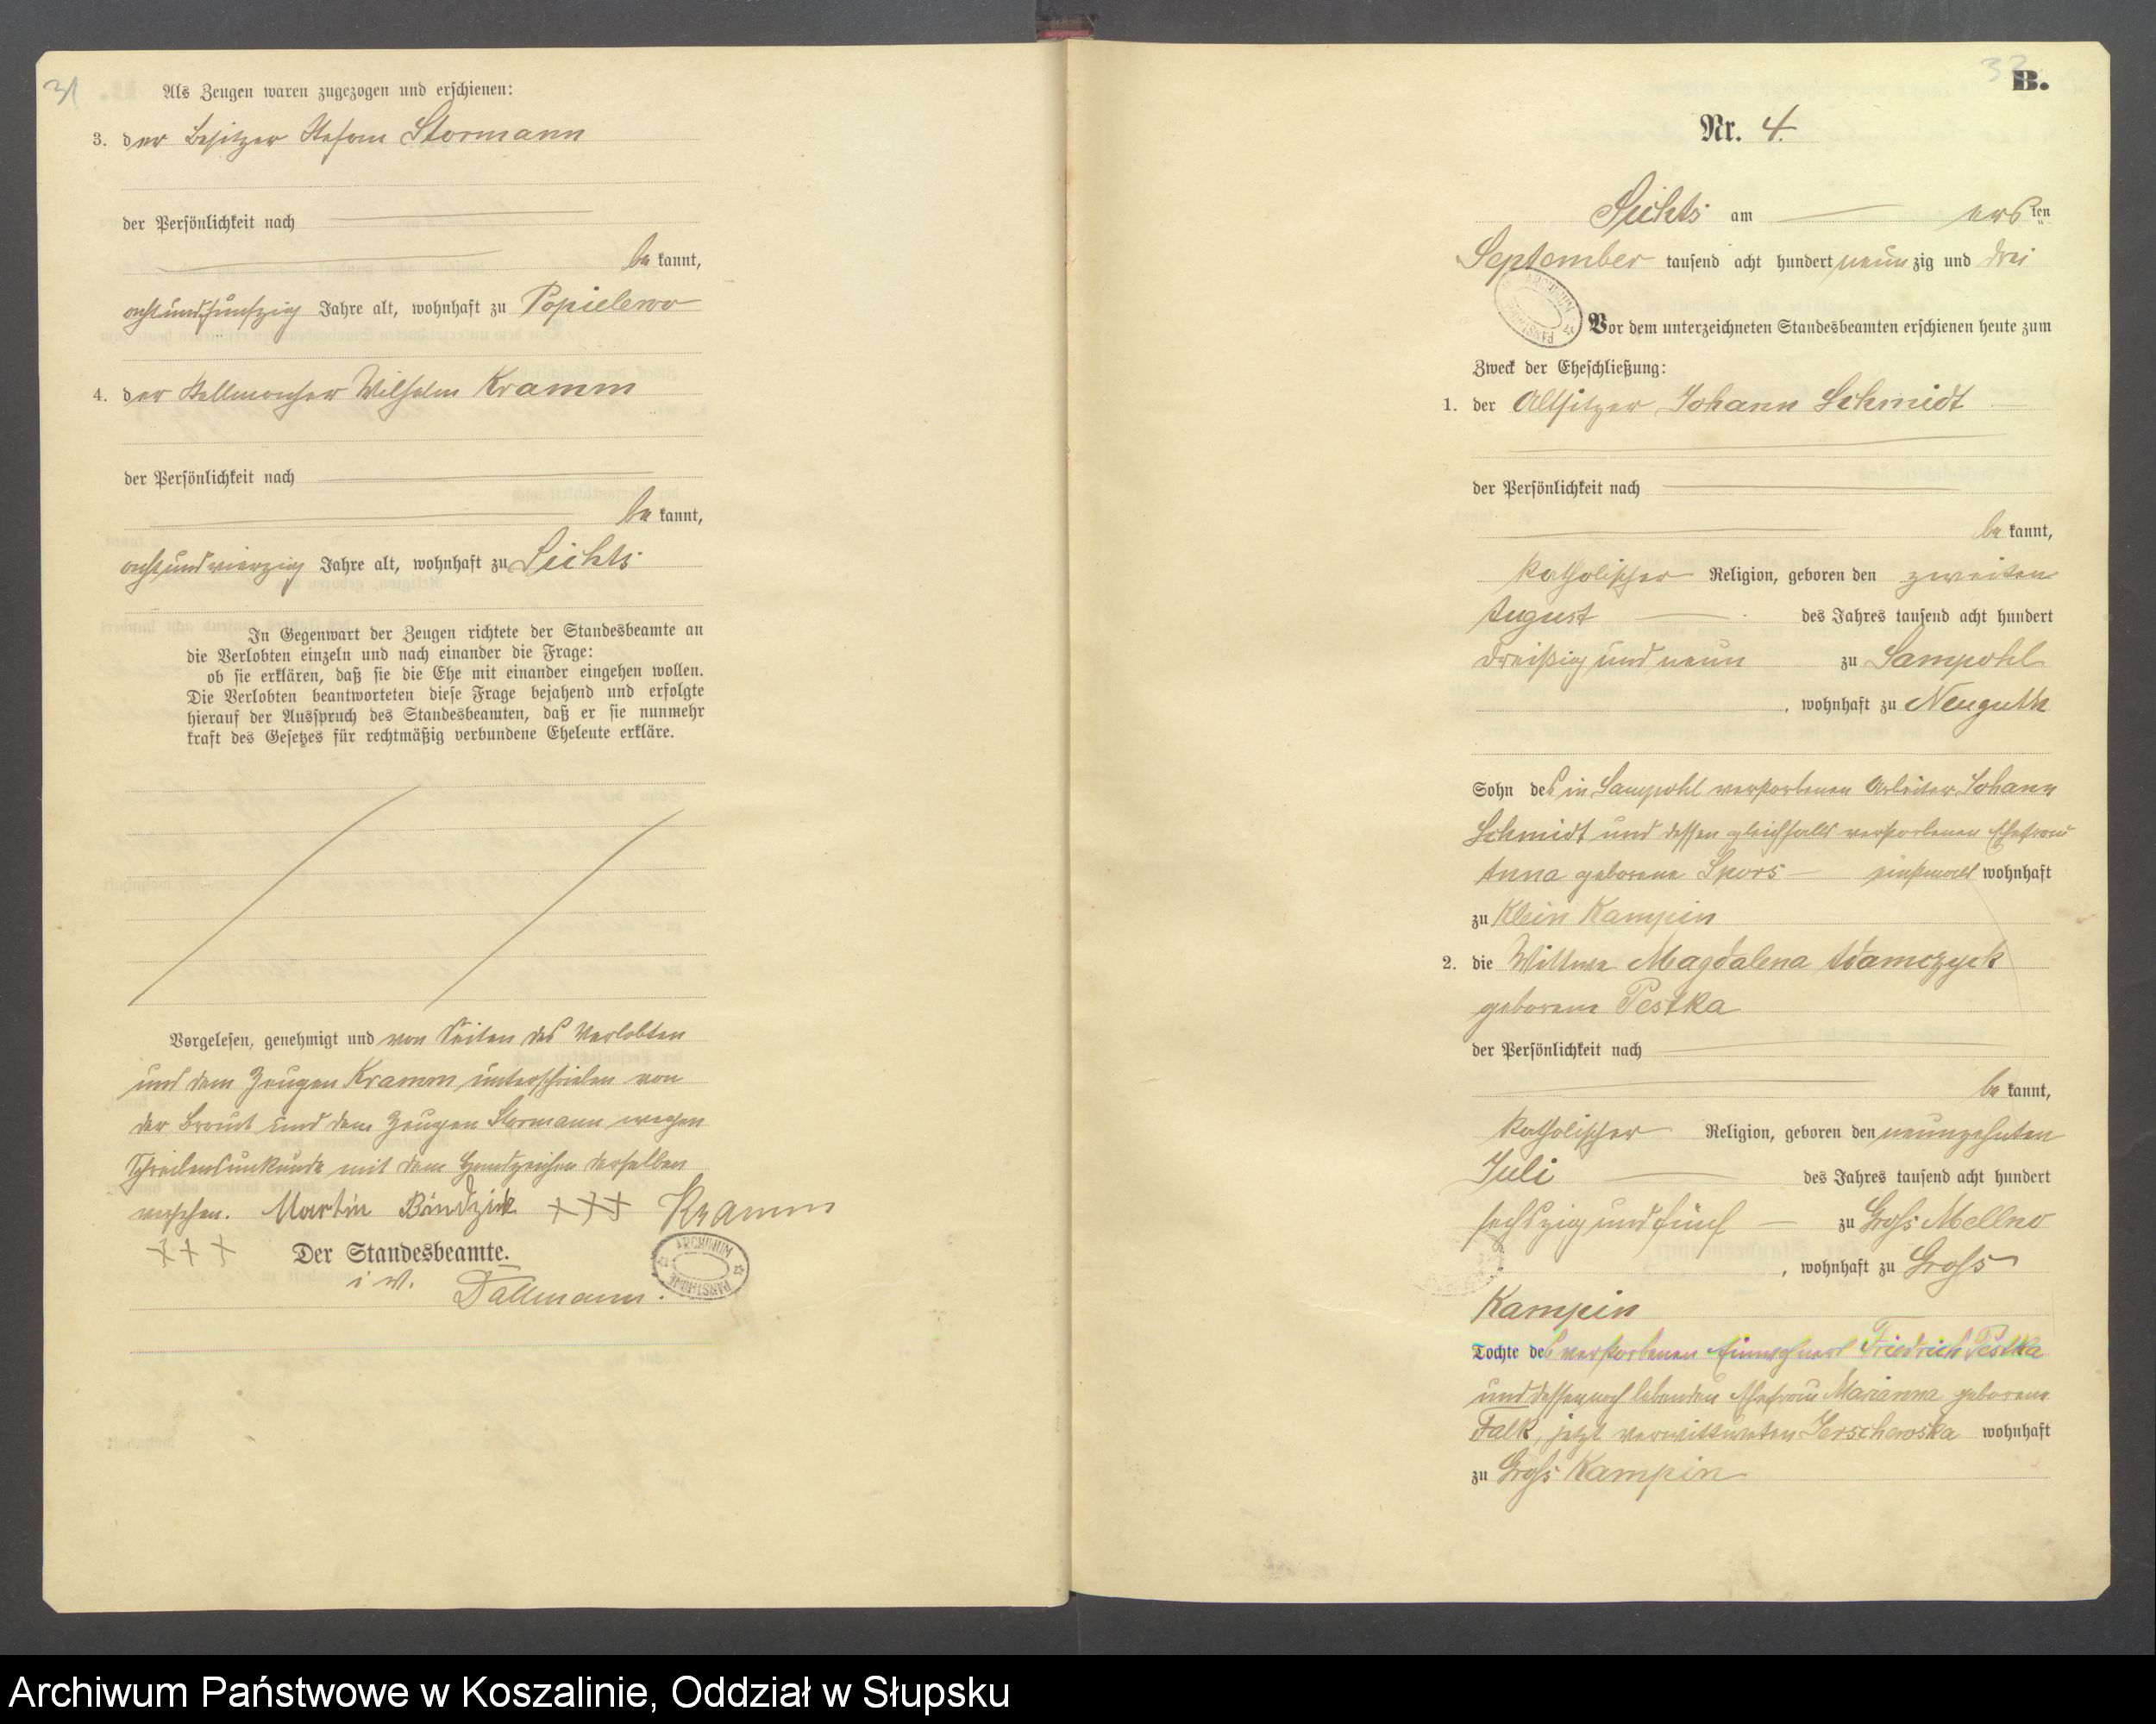 31
Als Zeugen waren zugezogen und erschienen:
3. der Besitzer Stefan Stormann
der Persönlichkeit nach
be kannt,
achtundfünfzig Jahre alt, wohnhaft zu Popielewo
4. der Stellmacher Wilhelm Kramm
der Persönlichkeit nach
be kannt,
achtundvierzig Jahre alt, wohnhaft zu Lichts
In Gegenwart der Zeugen richtete der Standesbeamte an
die Verlobten einzeln und nach einander die Frage:
ob sie erklären, daß sie die Ehe mit einander eingehen wollen.
Die Verlobten beantworteten diese Frage bejahend und erfolgte
hierauf der Ausspruch des Standesbeamten, daß er sie nunmehr
kraft des Gesetzes für rechtmäßig verbundene Eheleute erkläre.
Vorgelesen, genehmigt und von Seiten des Verlobten
und dem Zeugen Kramm unterschrieben von
der Braut und dem Zeugen Stormann wegen
Schreibensunkunde mit dem Handzeichen derselben
versehen. Martin Bindzick +++ Kramm
+++ Der Standesbeamte.
i. V.
Dallmann.
ARCHIWUM PAŃSTWOWE
B.
Nr. 4.
Lichts am ersten
September tausend acht hundert neun zig und drei
ARCHIWUM PAŃSTWOWE
Vor dem unterzeichneten Standesbeamten erschienen heute zum
Zweck der Eheschließung:
1. der Altsitzer Johann Schmidt
der Persönlichkeit nach
be kannt,
katholischer Religion, geboren den zweiten
August des Jahres tausend acht hundert
dreißig und neun zu Sampohl
, wohnhaft zu Neuguth
Sohn des in Sampohl verstorbenen Arbeiter Johann
Schmidt und dessen gleichfalls verstorbenen Ehefrau
Anna geborene Spors einstmals wohnhaft
zu Klein Kampin
2. die Wittwe Magdalena Adamczyck
geborene Pestka
der Persönlichkeit nach
be kannt,
katholischer Religion, geboren den neunzehnten
Juli des Jahres tausend acht hundert
sechszig und fünf zu Groß Mellno
, wohnhaft zu Groß
Kampin
Tochter des verstorbenen Einwohners Friedrich Pestka
und dessen noch lebenden Ehefrau Marianna geborene
Falk, jetzt verwittweten Jerschewska wohnhaft
zu Groß Kampin
Archiwum Państwowe w Koszalinie, Oddział w Słupsku